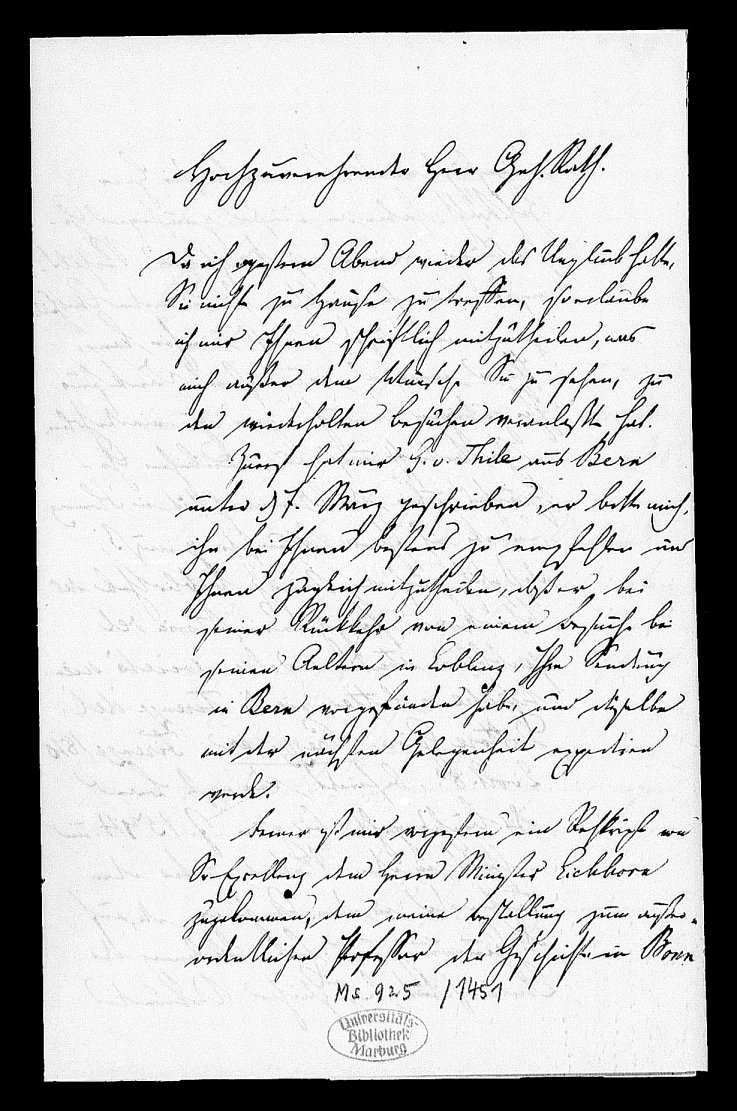 Hochzuverehrender Herr Geh. Rath.
Da ich gestern Abend wieder das Unglück hatte,
Sie nicht zu Hause zu treffen, so erlaube
ich mir Ihnen schriftlich mitzutheilen, was
mich außer dem Wunsche Sie zu sehen, zu
den wiederholten Besuchen veranlaßt hat.
Zuerst hat mir H. v. Thile aus Bern
unter d 7. März geschrieben, er bitte mich,
ihn bei Ihnen bestens zu empfehlen und
Ihnen zugleich mitzutheilen, daß er bei
seiner Rückkehr von einem Besuche bei
seinen Aeltern in Coblenz, Ihre Sendung
in Bern vorgefunden habe, und dieselbe
mit der nächsten Gelegenheit expediren
werde.
Ferner ist mir vorgestern ein Rescript von
Sr Excellenz dem Herrn Minister Eichhorn
zugekommen, dem meine Bestallung zum außer-
ordentlichen Professor der Geschichte in Bonn
Ms. 925 /1451
Universitäts-
Bibliothek
Marburg